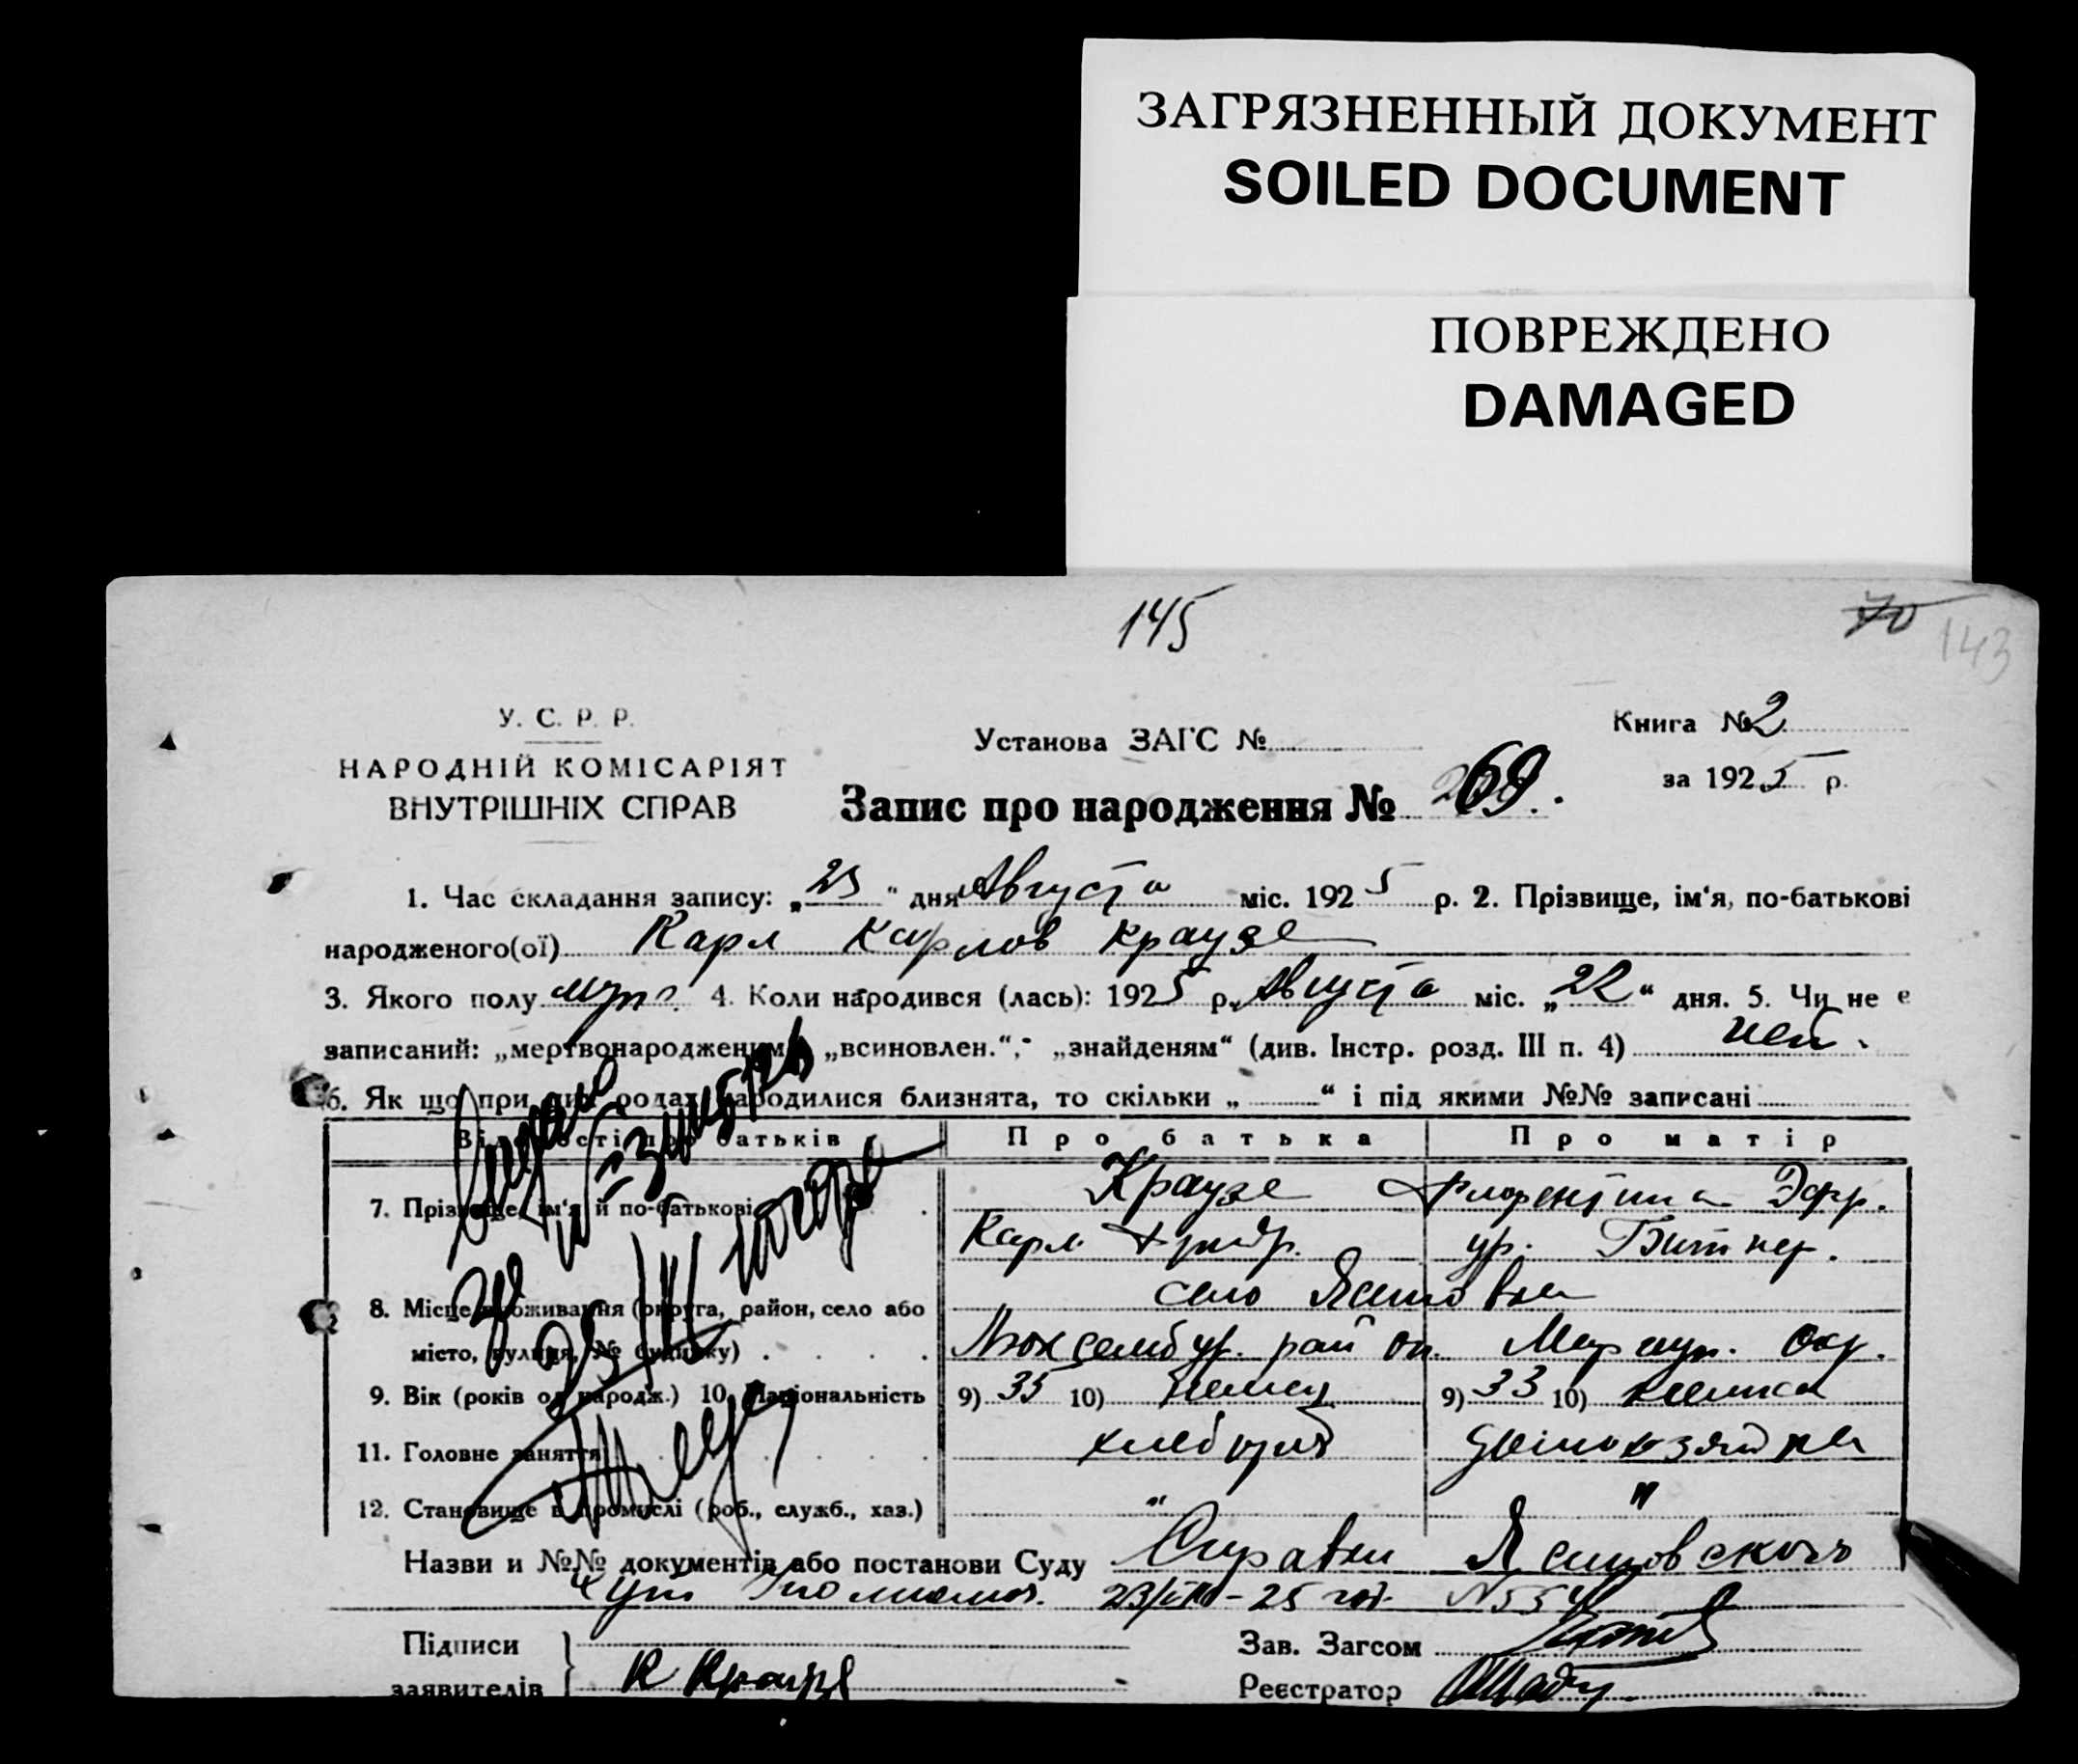 ЗАГРЯЗНЕННЫЙ ДОКУМЕНТ
SOILED DOCUMENT
ПОВРЕЖДЕНО
DAMAGED
145
70
143
У. С. Р. Р.
НАРОДНІЙ КОМІСАРІЯТ
ВНУТРІШНІХ СПРАВ
Установа ЗАГС №
Книга № 2
за 1925 р.
Запис про народження № 269.
1. Час складання запису: „ “ дня Августа міс. 1925 р. 2. Прізвище, ім'я, по-батькові
народженого(ої) Карл Карлов Краузе
3. Якого полу муж. 4. Коли народився (лась): 1925 р. Августа міс. „22“ дня. 5. Чи не є
записаний: „мертвонародженим“, „всиновлен.“, „знайденям“ (див. Інстр. розд. III п. 4) нет.
6. Як що при цих родах народилися близнята, то скільки „ “ і під якими №№ записані
Відомості про батьків Про батька Про матір
7. Прізвище, ім'я й по-батькові Краузе Флорентина
Карл ур. Битнер.
8. Місце проживання (округа, район, село або село
місто, вулиця, № будинку) Люксембур. район. Окр.
9. Вік (років од народж.) 10. Національність 9) 35 10) немец 9) 33 10) немка
11. Головне заняття хлебороб домохозяйка
12. Становище в промислі (роб., служб., хаз.) " "
Назви и №№ документів або постанови Суду Справка
23/VIII-25 N554
Підписи
заявителів К Краузе
Зав. Загсом
Реєстратор